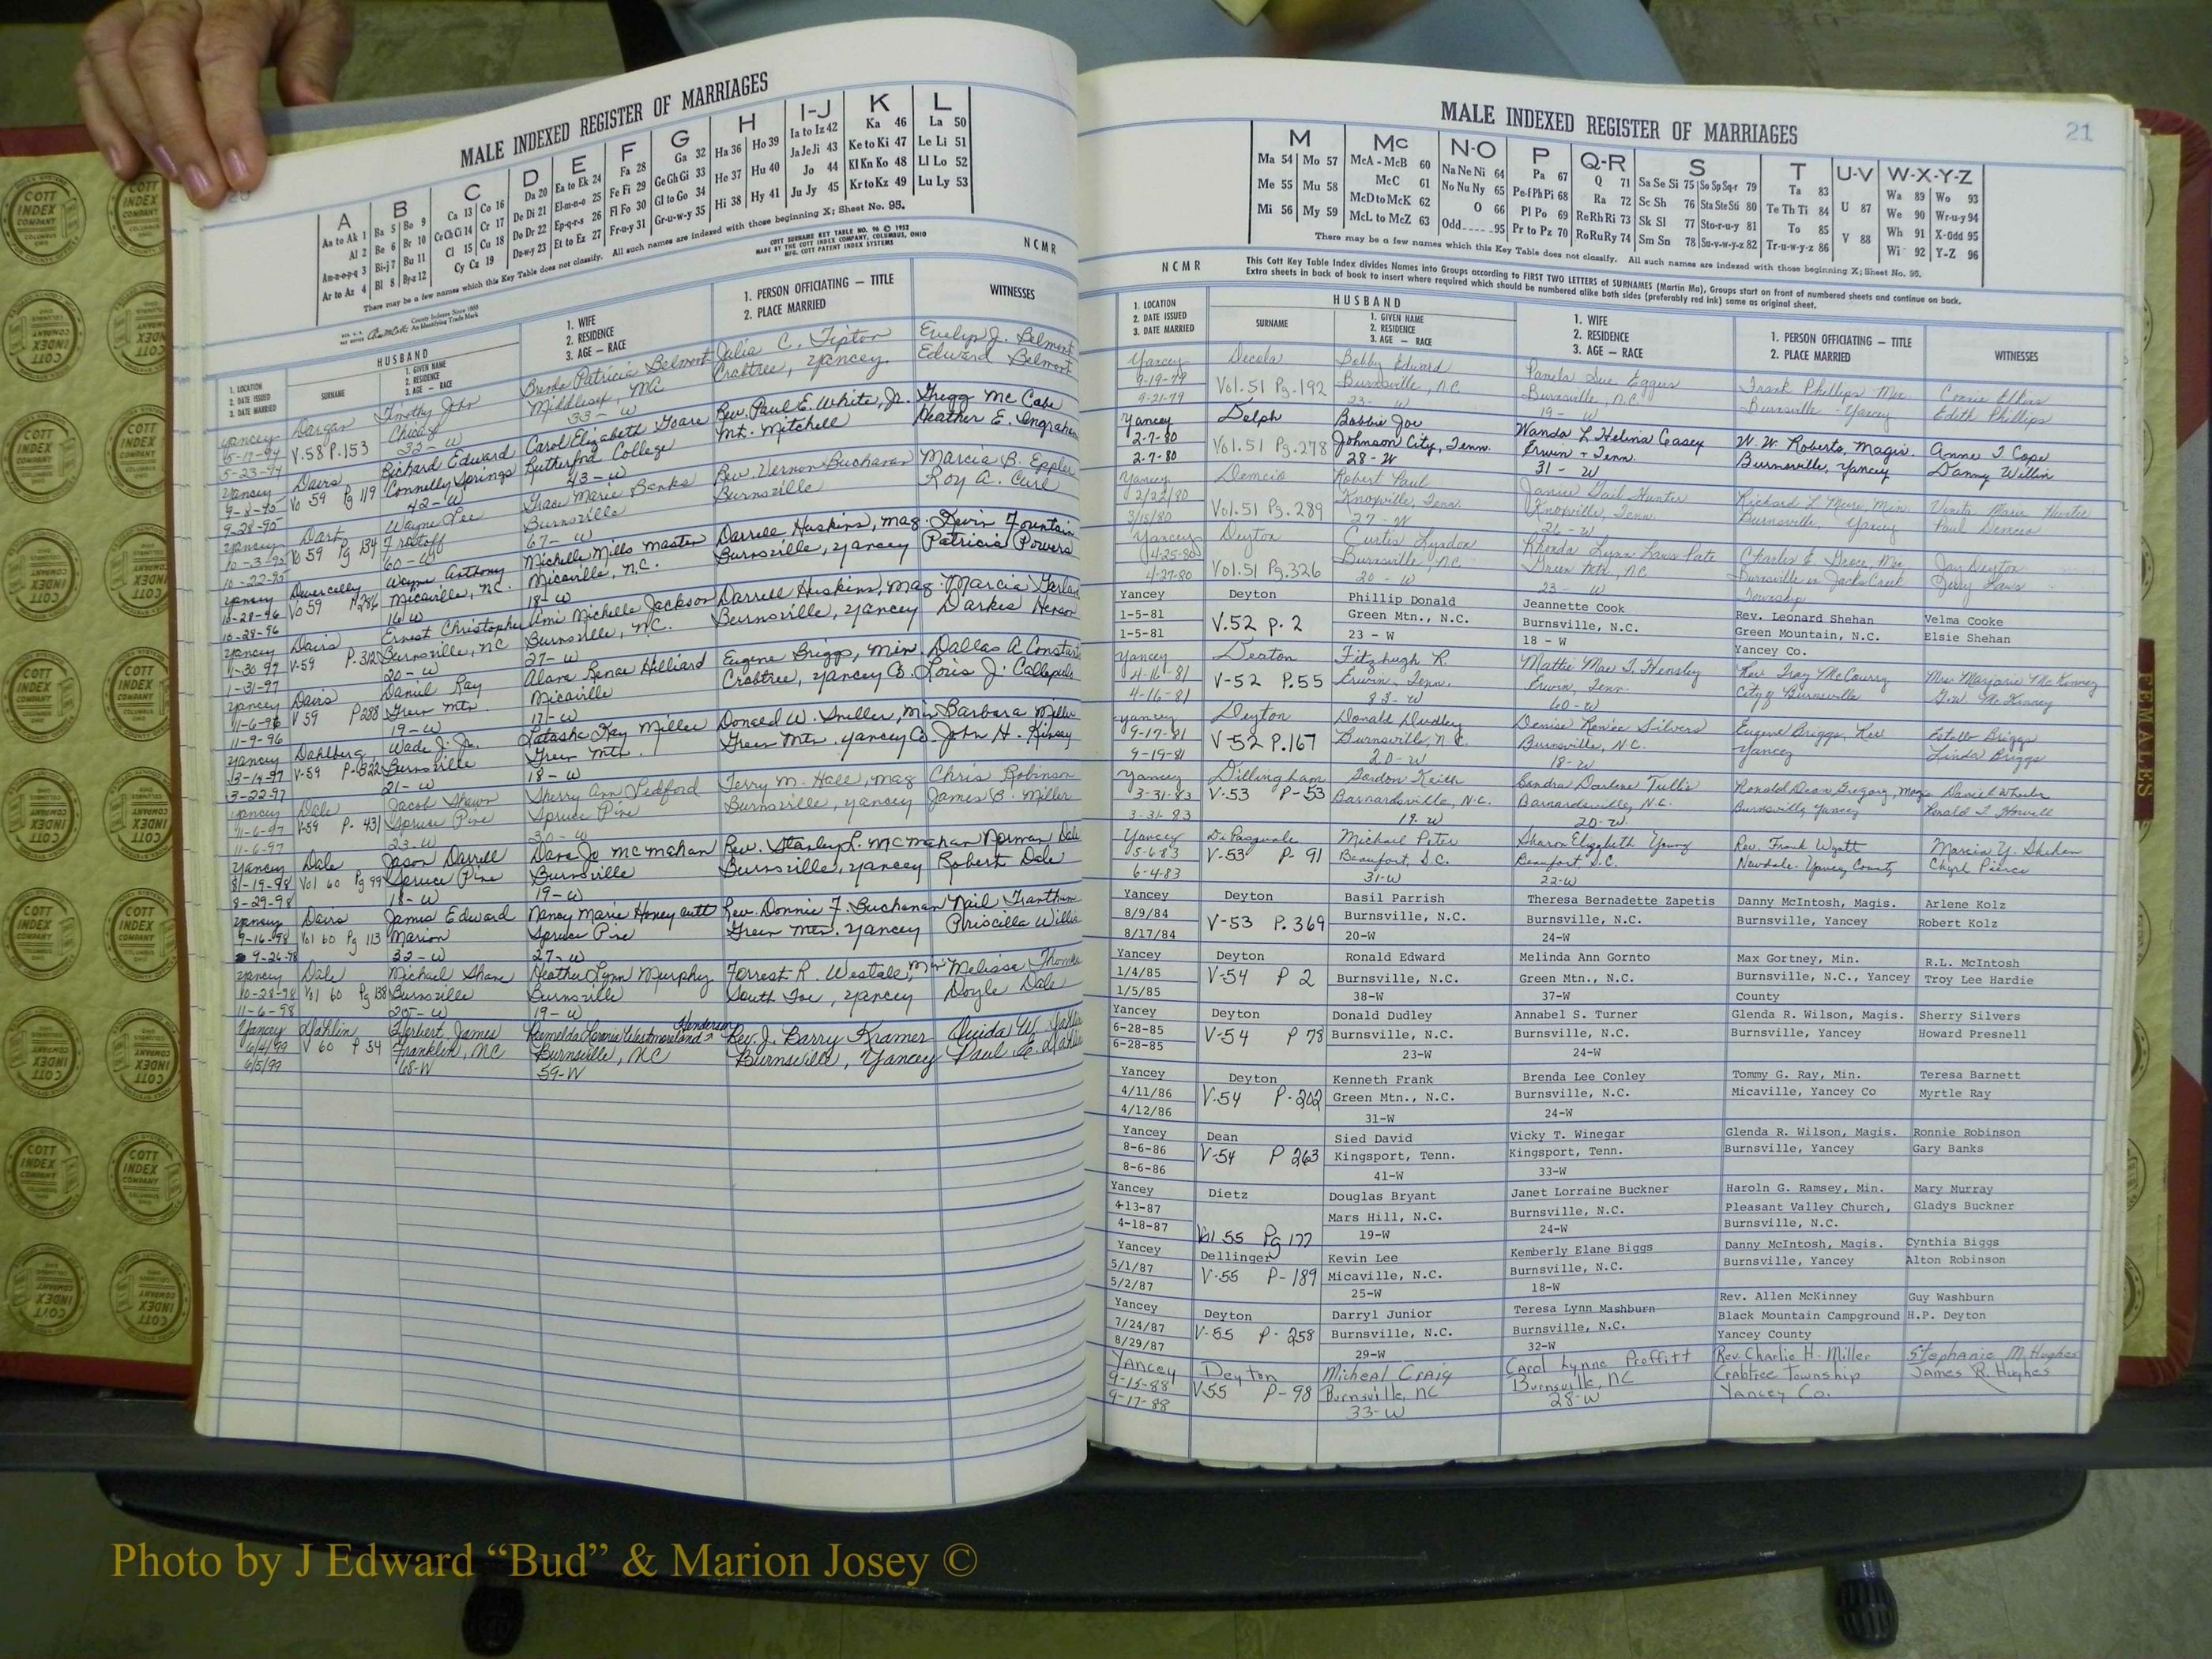 MALE INDEXED REGISTER OF MARRIAGES
A B C D E F G H I-J K L
Aa to Ak 1 Ba 5 Bo 9 Ca 13 Co 16 Da 20 Ea to Ek 24 Fa 28 Ga 32 Ha 36 Ho 39 Ia to Iz 42 Ka 46 La 50
Al 2 Be 6 Br 10 Ce Ch Ci 14 Cr 17 De Di 21 El-m-n-o 25 Fe Fi 29 Ge Gh Gi 33 He 37 Hu 40 Ja Je Ji 43 Ke to Ki 47 Le Li 51
Am-n-o-p-q 3 Bi-j 7 Bu 11 Cl 15 Cu 18 Do Dr 22 Ep-q-r-s 26 Fl Fo 30 Gl to Go 34 Hi 38 Hy 41 Jo 44 Kl Kn Ko 48 Ll Lo 52
Ar to Az 4 Bl 8 By-z 12 Cy Cz 19 Du-w-y 23 Et to Ez 27 Fr-u-y 31 Gr-u-w-y 35 Ju Jy 45 Kr to Kz 49 Lu Ly 53
There may be a few names which this Key Table does not classify. All such names are indexed with those beginning X; Sheet No. 95.
COTT SURNAME KEY TABLE NO. 96 © 1952
MADE BY THE COTT INDEX COMPANY, COLUMBUS, OHIO
MFG. COTT PATENT INDEX SYSTEMS
NCMR
County Indexes Since 1888
An Identifying Trade Mark
1. LOCATION
2. DATE ISSUED
3. DATE MARRIED
HUSBAND
SURNAME
1. GIVEN NAME
2. RESIDENCE
3. AGE — RACE
1. WIFE
2. RESIDENCE
3. AGE — RACE
1. PERSON OFFICIATING — TITLE
2. PLACE MARRIED
WITNESSES
Yancey Dargan Timothy John Brenda Patricia Belmont Julia C. Tipton Evelyn J. Belmont
5-17-94 V.58 P.153 Chicago Middlesex, MA Crabtree, Yancey Edward Belmont
5-23-94 32-W 33-W
Yancey Davis Richard Edward Carol Elizabeth Goare Rev. Paul E. White, Jr. Gregg McCabe
9-8-95 Vo 59 Pg 119 Connelly Springs Rutherford College Mt. Mitchell Heather E. Ingraham
9-28-95 42-W 43-W
Yancey Dart Wayne Lee Grace Marie Banks Rev. Vernon Buchanan Marcia B. Eppler
10-3-95 Vo 59 Pg 134 Burnsville Burnsville Roy A. Curl
10-22-95 60-W 67-W
Yancey Wayne Anthony Michelle Mills Masters Darrell Huskins, Mag. Kevin Fountain
10-28-96 Vo 59 Micaville, N.C. Micaville, N.C. Burnsville, Yancey Patricia Powers
10-28-96 16 W 18-W
Yancey Davis Ernest Christopher Ami Michelle Jackson Darrell Huskins, Mag Marcia
1-30-97 V-59 P-312 Burnsville, NC Burnsville, N.C. Burnsville, Yancey
1-31-97 20-W 27-W
Yancey Davis Daniel Ray Alana Renae Hilliard Eugene Briggs, Min. Dallas A.
11-6-96 V 59 P288 Green Mtn. Micaville Crabtree, Yancey Co. Lois J.
11-9-96 19-W 17-W
Yancey Dahlberg Wade J. Jr. Latasha Kay Miller Donald W. Barbara Miller
3-14-97 V-59 P-322 Burnsville Green Mtn. Green Mtn. Yancey Co. John H.
3-22-97 21-W 18-W
Yancey Dale Jacob Shawn Sherry Ann Pedford Terry M. Hall, Mag Chris Robinson
11-6-97 V-59 P-431 Spruce Pine Spruce Pine Burnsville, Yancey James B. Miller
11-6-97 23-W 30-W
Yancey Dale Jason Darrell Dana Jo McMahan Rev. Stanley L. McMahan Norman Dale
8-19-98 Vol 60 Pg 99 Spruce Pine Burnsville Burnsville, Yancey Robert Dale
8-29-98 18-W 19-W
Yancey Davis James Edward Nancy Marie Honeycutt Rev. Donnie F. Buchanan Nail Grantham
9-16-98 Vol 60 Pg 113 Marion Spruce Pine Green Mtn. Yancey Priscilla Willis
9-26-98 32-W 27-W
Yancey Dale Michael Shane Heather Lynn Murphy Forrest R. Westall, Min Melissa Thomas
10-28-98 Vol 60 Pg 138 Burnsville Burnsville South Toe, Yancey Doyle Dale
11-6-98 20-W 19-W
Yancey Dahlin Herbert James Westmoreland Henderson Rev. J. Barry Kramer Ouida W. Dahlin
6/4/99 V 60 P 54 Franklin, NC Burnsville, NC Burnsville, Yancey Paul E. Dahlin
6/5/99 68-W 59-W
MALE INDEXED REGISTER OF MARRIAGES
21
M Mc N-O P Q-R S T U-V W-X-Y-Z
Ma 54 Mo 57 McA - McB 60 Na Ne Ni 64 Pa 67 Q 71 Sa Se Si 75 So Sp Sq-r 79 Ta 83 U 87 Wa 89 Wo 93
Me 55 Mu 58 McC 61 No Nu Ny 65 Pe-f Ph Pi 68 Ra 72 Sc Sh 76 Sta Ste Sti 80 Te Th Ti 84 V 88 We 90 Wr-u-y 94
Mi 56 My 59 McD to McK 62 O 66 Pl Po 69 Re Rh Ri 73 Sk Sl 77 Sto-r-u-y 81 To 85 Wh 91 X-Odd 95
McL to McZ 63 Odd 95 Pr to Pz 70 Ro Ru Ry 74 Sm Sn 78 Su-v-w-y-z 82 Tr-u-w-y-z 86 Wi 92 Y-Z 96
There may be a few names which this Key Table does not classify. All such names are indexed with those beginning X; Sheet No. 95.
NCMR
This Cott Key Table Index divides Names into Groups according to FIRST TWO LETTERS of SURNAMES (Martin Ma), Groups start on front of numbered sheets and continue on back.
Extra sheets in back of book to insert where required which should be numbered alike both sides (preferably red ink) same as original sheet.
1. LOCATION
2. DATE ISSUED
3. DATE MARRIED
HUSBAND
SURNAME
1. GIVEN NAME
2. RESIDENCE
3. AGE — RACE
1. WIFE
2. RESIDENCE
3. AGE — RACE
1. PERSON OFFICIATING — TITLE
2. PLACE MARRIED
WITNESSES
Yancey Decola Bobby Edward Pamela Sue Eggers Frank Phillips Min. Connie Elkins
9-19-79 Vol.51 Pg.192 Burnsville, N.C. Burnsville, N.C. Burnsville - Yancey Edith Phillips
9-21-79 23-W 19-W
Yancey Delph Bobbie Joe Wanda L Helina Casey W. W. Roberts, Magis. Anne T Cope
2-7-80 Vol.51 Pg.278 Johnson City, Tenn. Erwin - Tenn. Burnsville, Yancey Danny Willin
2-7-80 28-W 31-W
Yancey Demcio Robert Paul Janice Gail Hunter Richard L Muri Min.
2/22/80 Vol.51 Pg.289 Knoxville, Tenn. Knoxville, Tenn. Burnsville, Yancey Paul Demcio
3/15/80 27-W 26-W
Yancey Deyton Curtis Lyndon Rhonda Lynn Laws Pate Charles E. Grace, Min Jay Deyton
4-25-80 Vol.51 Pg.326 Burnsville N.C. Green Mtn., NC Burnsville in Jacks Creek Jerry Laws
4-27-80 20-W 23-W Township
Yancey Deyton Phillip Donald Jeannette Cook Rev. Leonard Shehan Velma Cooke
1-5-81 V.52 P.2 Green Mtn., N.C. Burnsville, N.C. Green Mountain, N.C. Elsie Shehan
1-5-81 23 - W 18 - W Yancey Co.
Yancey Deaton Fitzhugh R. Mattie Mae T. Hensley Rev Troy McCourry Mrs Marjorie McKinney
4-16-81 V-52 P.55 Erwin, Tenn. Erwin, Tenn. City of Burnsville McKinney
4-16-81 83-W 60-W
Yancey Deyton Donald Dudley Denise Renée Silvers Eugene Briggs, Rev Estelle Briggs
9-17-81 V-52 P.167 Burnsville, N.C. Burnsville, N.C. Yancey Linda Briggs
9-19-81 20-W 18-W
Yancey Dillingham Gordon Keith Sandra Darlene Tullis Ronald Dean Gregory, Magis David Wheeler
3-31-83 V-53 P-53 Barnardsville, N.C. Barnardsville, N.C. Burnsville, Yancey Ronald T Howell
3-31-83 19-W 20-W
Yancey DiPasquale Michael Peter Sharon Elizabeth Young Rev. Frank Wyatt Marcia Y. Shehan
5-6-83 V-53 P-91 Beaufort, S.C. Beaufort S.C. Newdale-Yancey County Chyrl Pierce
6-4-83 31-W 22-W
Yancey Deyton Basil Parrish Theresa Bernadette Zapetis Danny McIntosh, Magis. Arlene Kolz
8/9/84 V-53 P.369 Burnsville, N.C. Burnsville, N.C. Burnsville, Yancey Robert Kolz
8/17/84 20-W 24-W
Yancey Deyton Ronald Edward Melinda Ann Gornto Max Gortney, Min. R.L. McIntosh
1/4/85 V-54 P 2 Burnsville, N.C. Green Mtn., N.C. Burnsville, N.C., Yancey Troy Lee Hardie
1/5/85 38-W 37-W County
Yancey Deyton Donald Dudley Annabel S. Turner Glenda R. Wilson, Magis. Sherry Silvers
6-28-85 V-54 P 78 Burnsville, N.C. Burnsville, N.C. Burnsville, Yancey Howard Presnell
6-28-85 23-W 24-W
Yancey Deyton Kenneth Frank Brenda Lee Conley Tommy G. Ray, Min. Teresa Barnett
4/11/86 V-54 P-202 Green Mtn., N.C. Burnsville, N.C. Micaville, Yancey Co Myrtle Ray
4/12/86 31-W 24-W
Yancey Dean Sied David Vicky T. Winegar Glenda R. Wilson, Magis. Ronnie Robinson
8-6-86 V-54 P 263 Kingsport, Tenn. Kingsport, Tenn. Burnsville, Yancey Gary Banks
8-6-86 41-W 33-W
Yancey Dietz Douglas Bryant Janet Lorraine Buckner Haroln G. Ramsey, Min. Mary Murray
4-13-87 Mars Hill, N.C. Burnsville, N.C. Pleasant Valley Church, Gladys Buckner
4-18-87 Vol 55 Pg 177 19-W 24-W Burnsville, N.C.
Yancey Dellinger Kevin Lee Kemberly Elane Biggs Danny McIntosh, Magis. Cynthia Biggs
5/1/87 V-55 P-189 Micaville, N.C. Burnsville, N.C. Burnsville, Yancey Alton Robinson
5/2/87 25-W 18-W
Yancey Deyton Darryl Junior Teresa Lynn Mashburn Rev. Allen McKinney Guy Washburn
7/24/87 V-55 P-258 Burnsville, N.C. Burnsville, N.C. Black Mountain Campground H.P. Deyton
8/29/87 29-W 32-W Yancey County
Yancey Deyton Micheal Craig Carol Lynne Proffitt Rev. Charlie H. Miller Stephanie M Hughes
9-15-88 V-55 P-98 Burnsville, NC Burnsville, NC Crabtree Township James R. Hughes
9-17-88 33-W 28-W Yancey Co.
FEMALES
Photo by J Edward “Bud” & Marion Josey ©